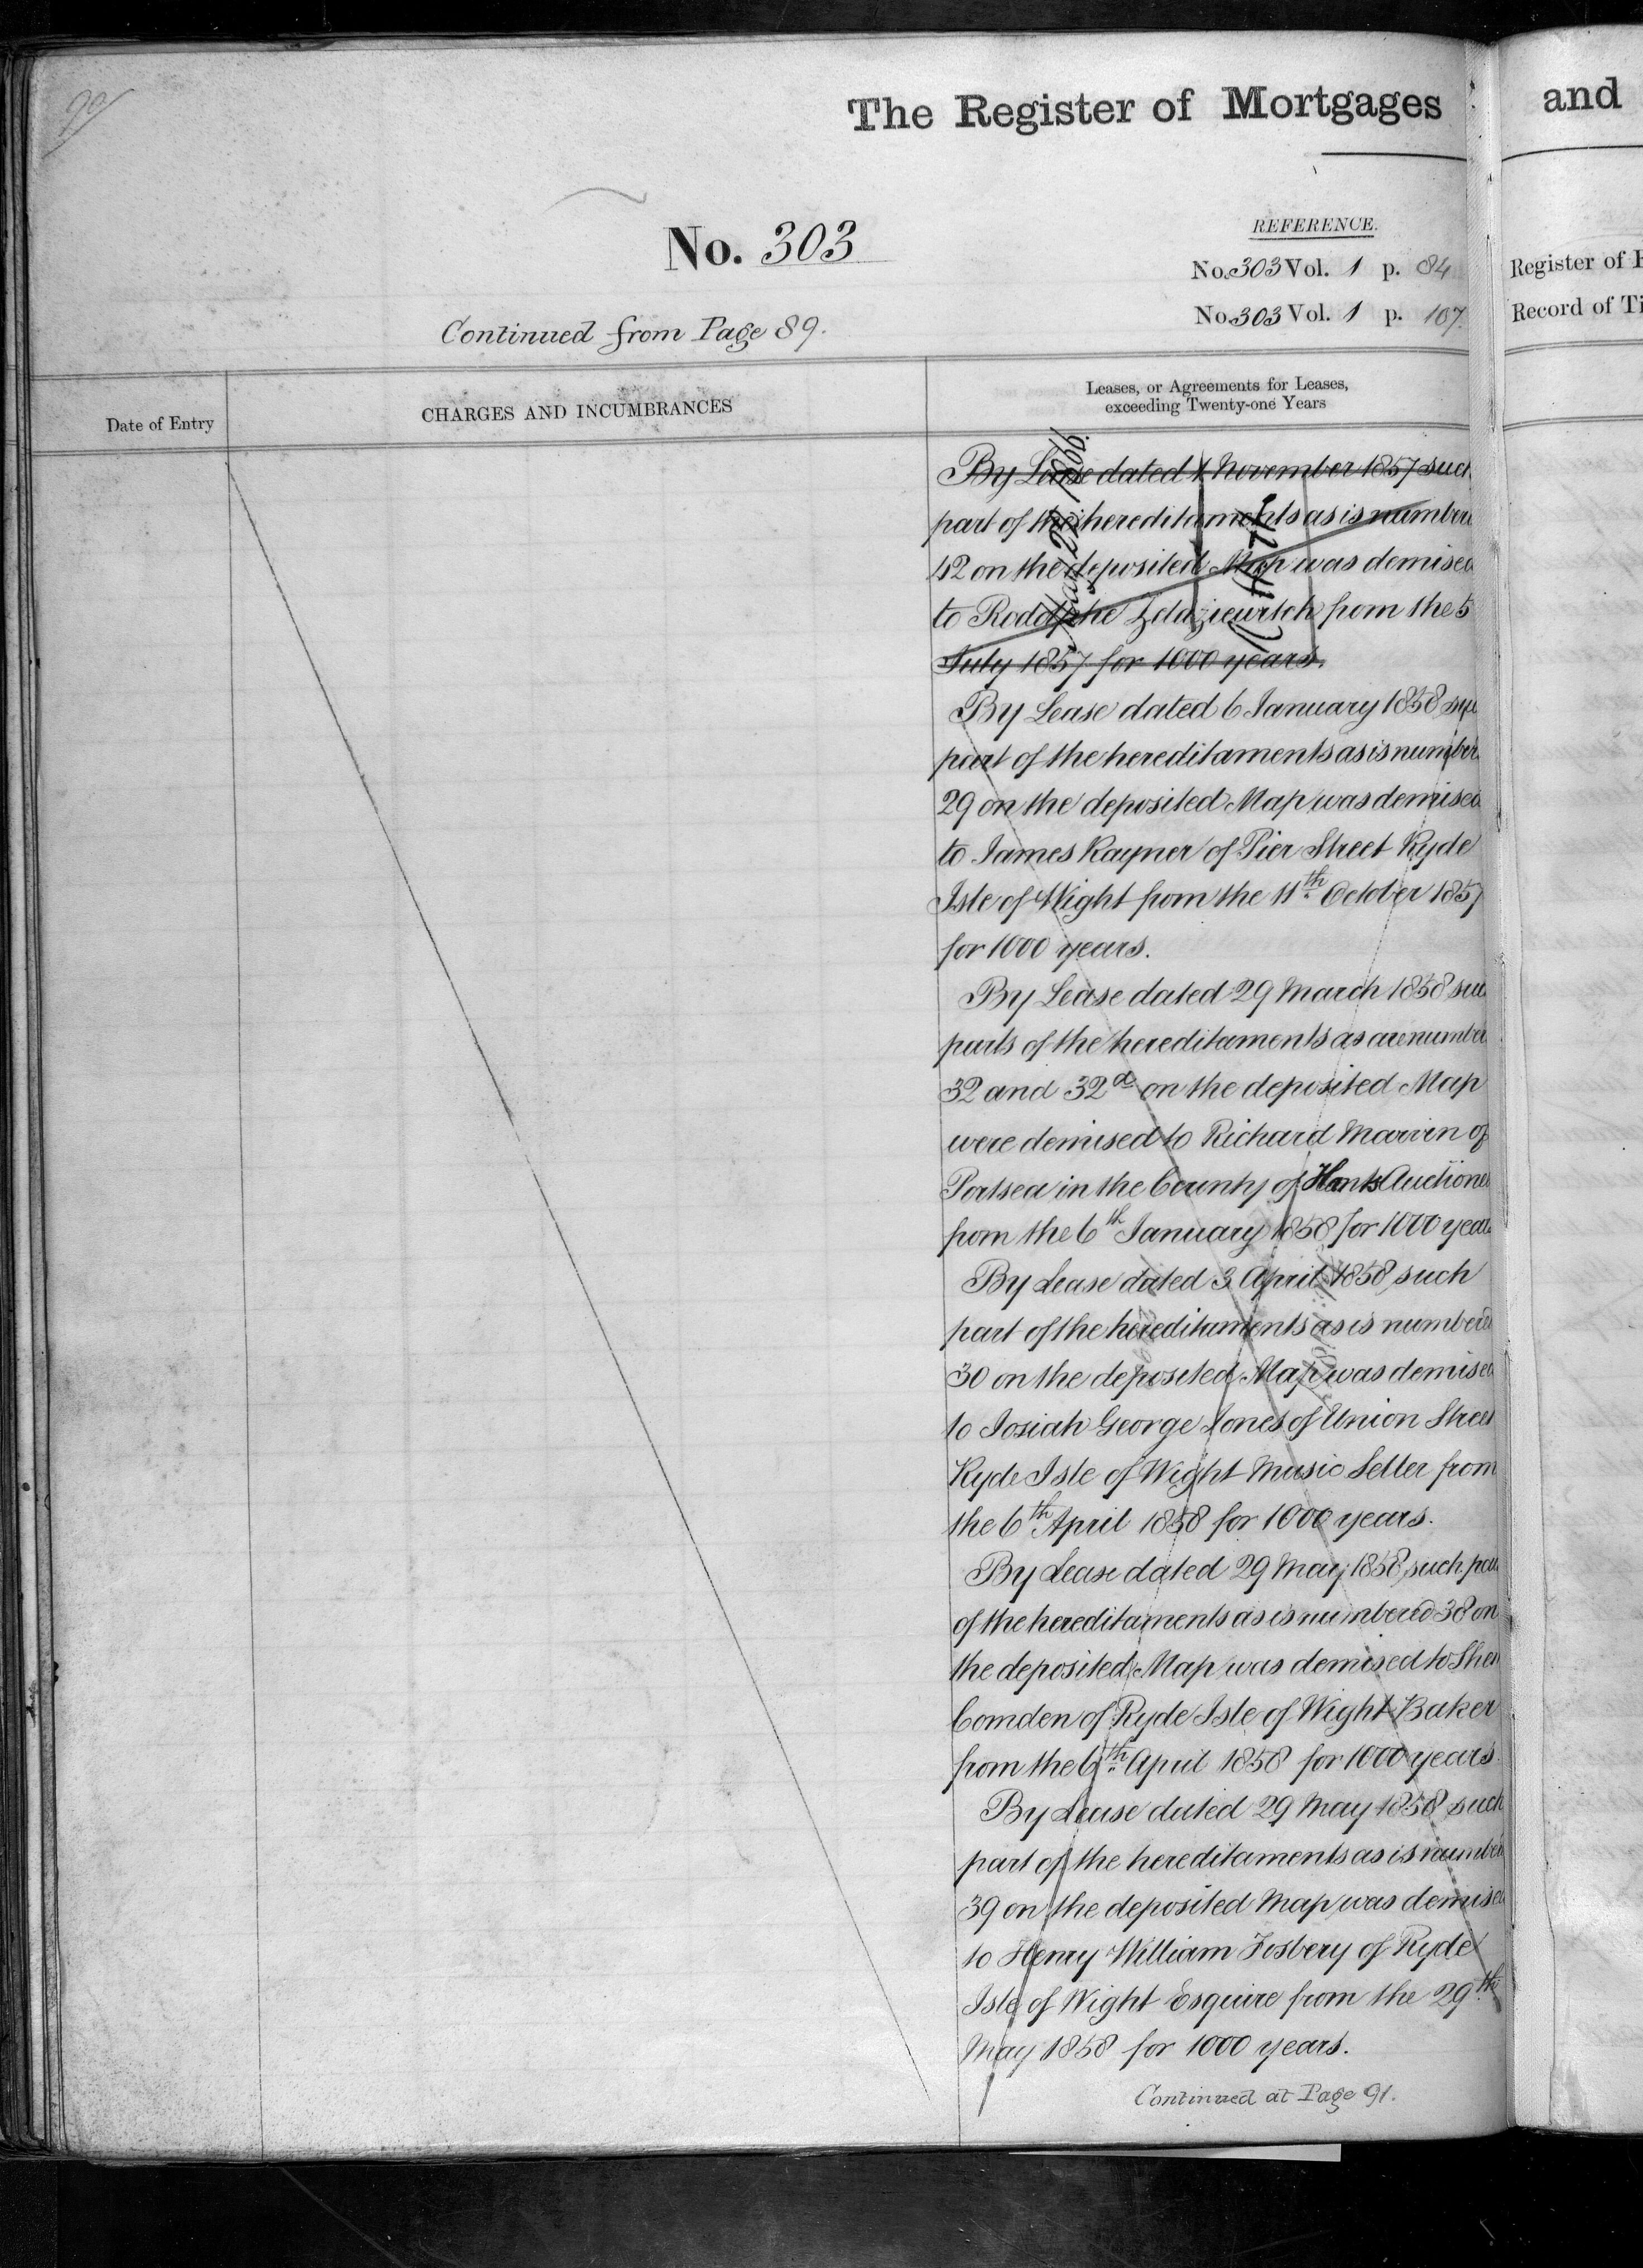 90
The Register of Mortgages
and
No. 303
REFERENCE.
No. 303 Vol. 1 p. 84
Register of
No. 303 Vol. 1 p. 107.
Record of Ti
Continued from Page 89.
Date of Entry
CHARGES AND INCUMBRANCES
Leases, or Agreements for Leases,
exceeding Twenty-one Years
By Lease dated November 1857 such
part of the hereditaments as is numbere
42 on the deposited Map was demised
to Rodolphe from the 5
July 1857 for 1000 years.
By Lease dated 6 January 1858 suc
part of the hereditaments as is number
29 on the deposited Map was demised
to James Rayner of Pier Street Ryde
Isle of Wight from the 11th October 1857
for 1000 years.
By Lease dated 29 March 1858 suc
parts of the hereditaments as are number
32 and 32a on the deposited Map
were demised to Richard Marvin of
Portsea in the County of Hants Auctionee
from the 6th January 1858 for 1000 years
By Lease dated 3 April 1858 such
part of the hereditaments as is numbered
30 on the deposited Map was demised
to Josiah George Jones of Union Street
Ryde Isle of Wight Music Seller from
the 6th April 1858 for 1000 years.
By Lease dated 29 May 1858 such par
of the hereditaments as is numbered 38 on
the deposited Map was demised to
Comden of Ryde Isle of Wight Baker
from the 6th April 1858 for 1000 years.
By Lease dated 29 May 1858 such
part of the hereditaments as is number
39 on the deposited Map was demised
to Henry William Fosbery of Ryde
Isle of Wight Esquire from the 29th
May 1858 for 1000 years.
Continued at Page 91.